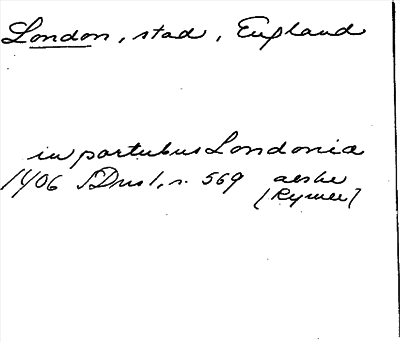 London, stad, England
in portubus Londonia
1406 SDns 1, n. 569 aeske
(Rymer)